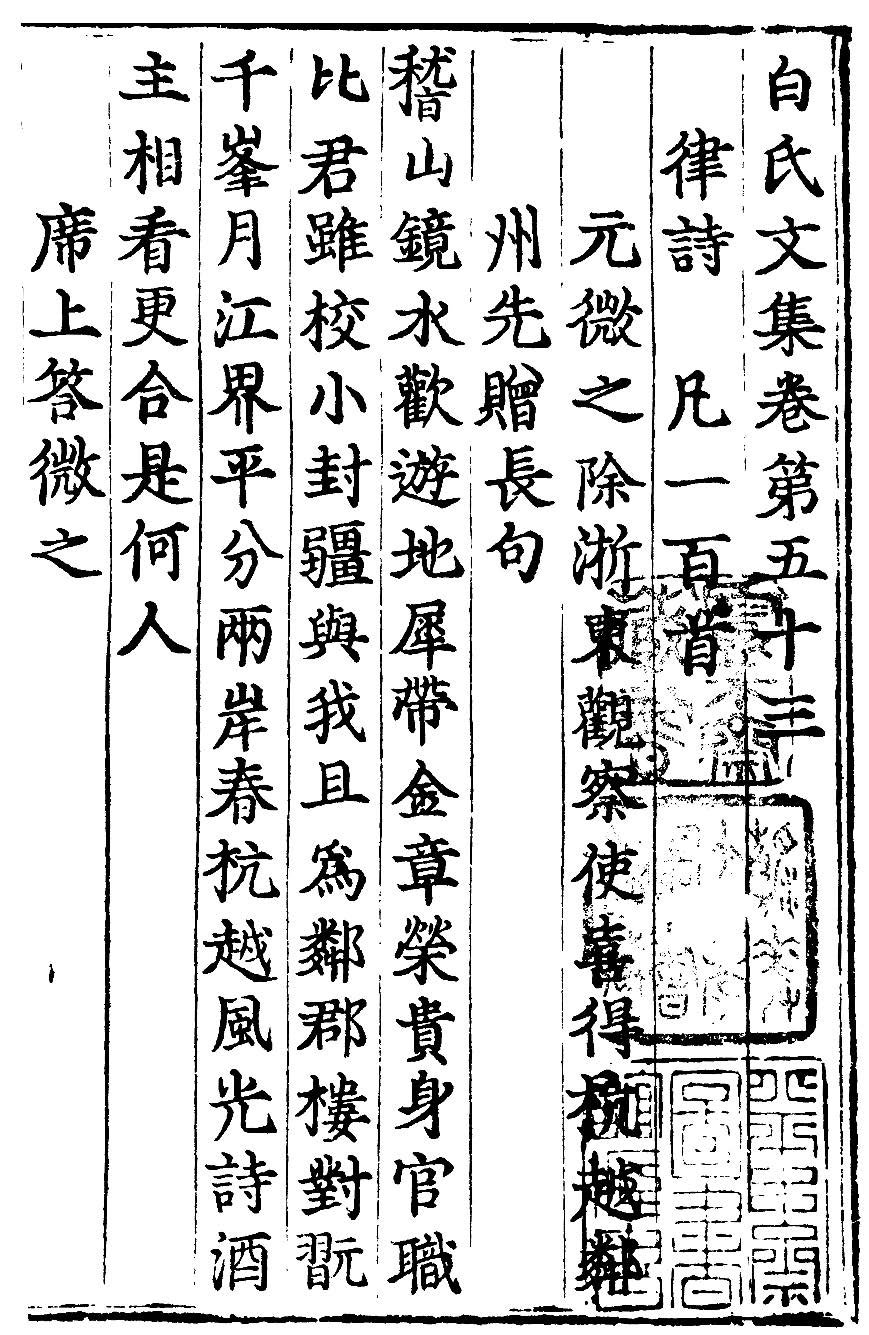 白氏文集卷第五十三
律詩 凡一百首
元微之除浙東觀察使喜得杭越鄰
州先贈長句
嵇山鏡水歡遊地犀帶金章榮貴身官職
比君雖校小封疆與我且爲鄰郡樓對翫
千峯月江界平分兩岸春杭越風光詩酒
主相看更合是何人
席上答微之